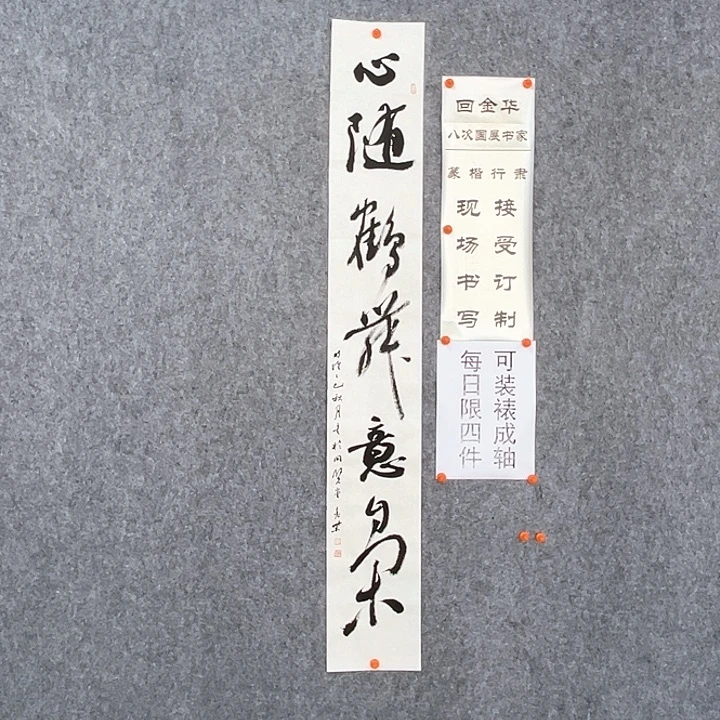 心随鹤舞意自柔
乙巳秋月书于
回金华
八次国展书家
篆楷行隶
接受订制
现场书写
可装裱成轴
每日限四件